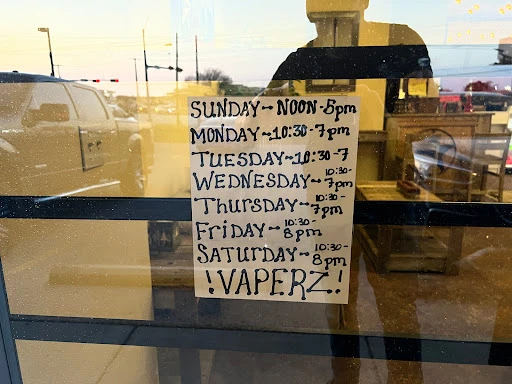 SUNDAY~NOON-5pm
MONDAY~10:30-7pm
TUESDAY~10:30-7
WEDNESDAY~10:30-7pm
THURSDAY~10:30-7pm
FRiDAY~10:30-8pm
SATURDAY~10:30-8pm
!VAPERZ!